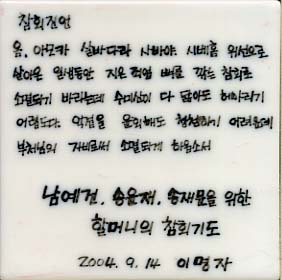 참회진언
옴. 아모카 살바다라 사바야. 시베훔 위선으로
살아온 일생동안 지은 죄업 뼈를 깎는 참회로
소멸되기 바라는데 수미산이 다 닳아도 헤아리기
어렵도다. 억겁을 윤회해도 청정하기 어려운데
부처님의 자비로써 소멸되게 하옵소서
남예건. 송윤재. 송재문을 위한
할머니의 참회기도
2004. 9. 14 이명자